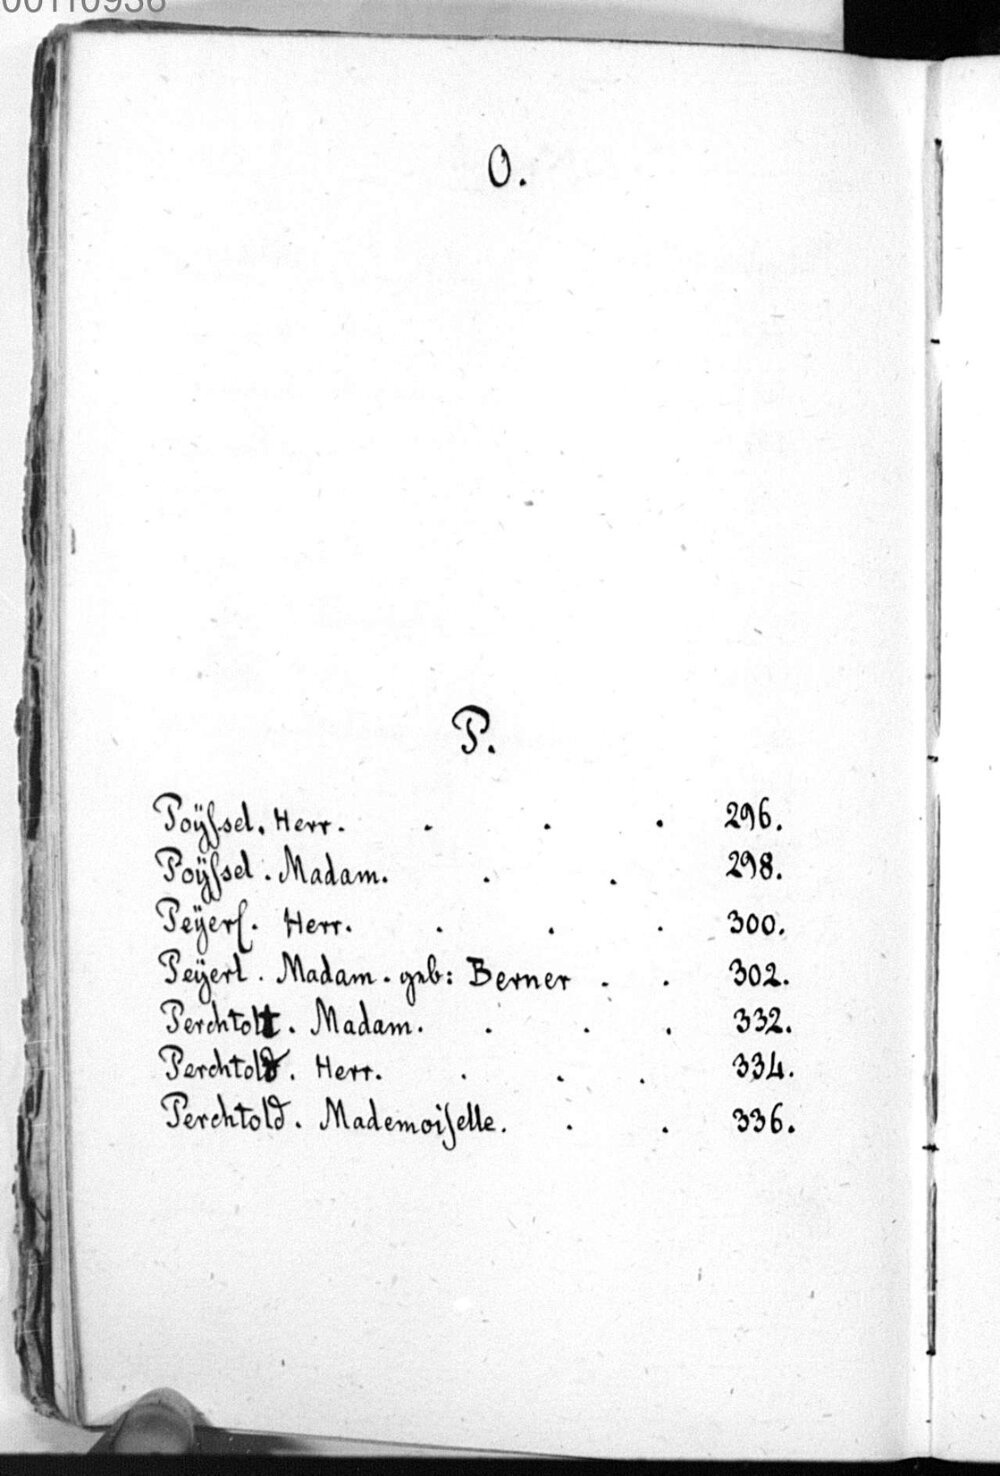 00110938
O.
P.
Poÿſsel. Herr. . . . 296.
Poÿſsel. Madam. . . 298.
Peÿerl. Herr. . . . 300.
Peÿerl. Madam. geb: Berner . . 302.
Perchtolt. Madam. . . . 332.
Perchtold. Herr. . . . 334.
Perchtold. Mademoiſelle. . . 336.